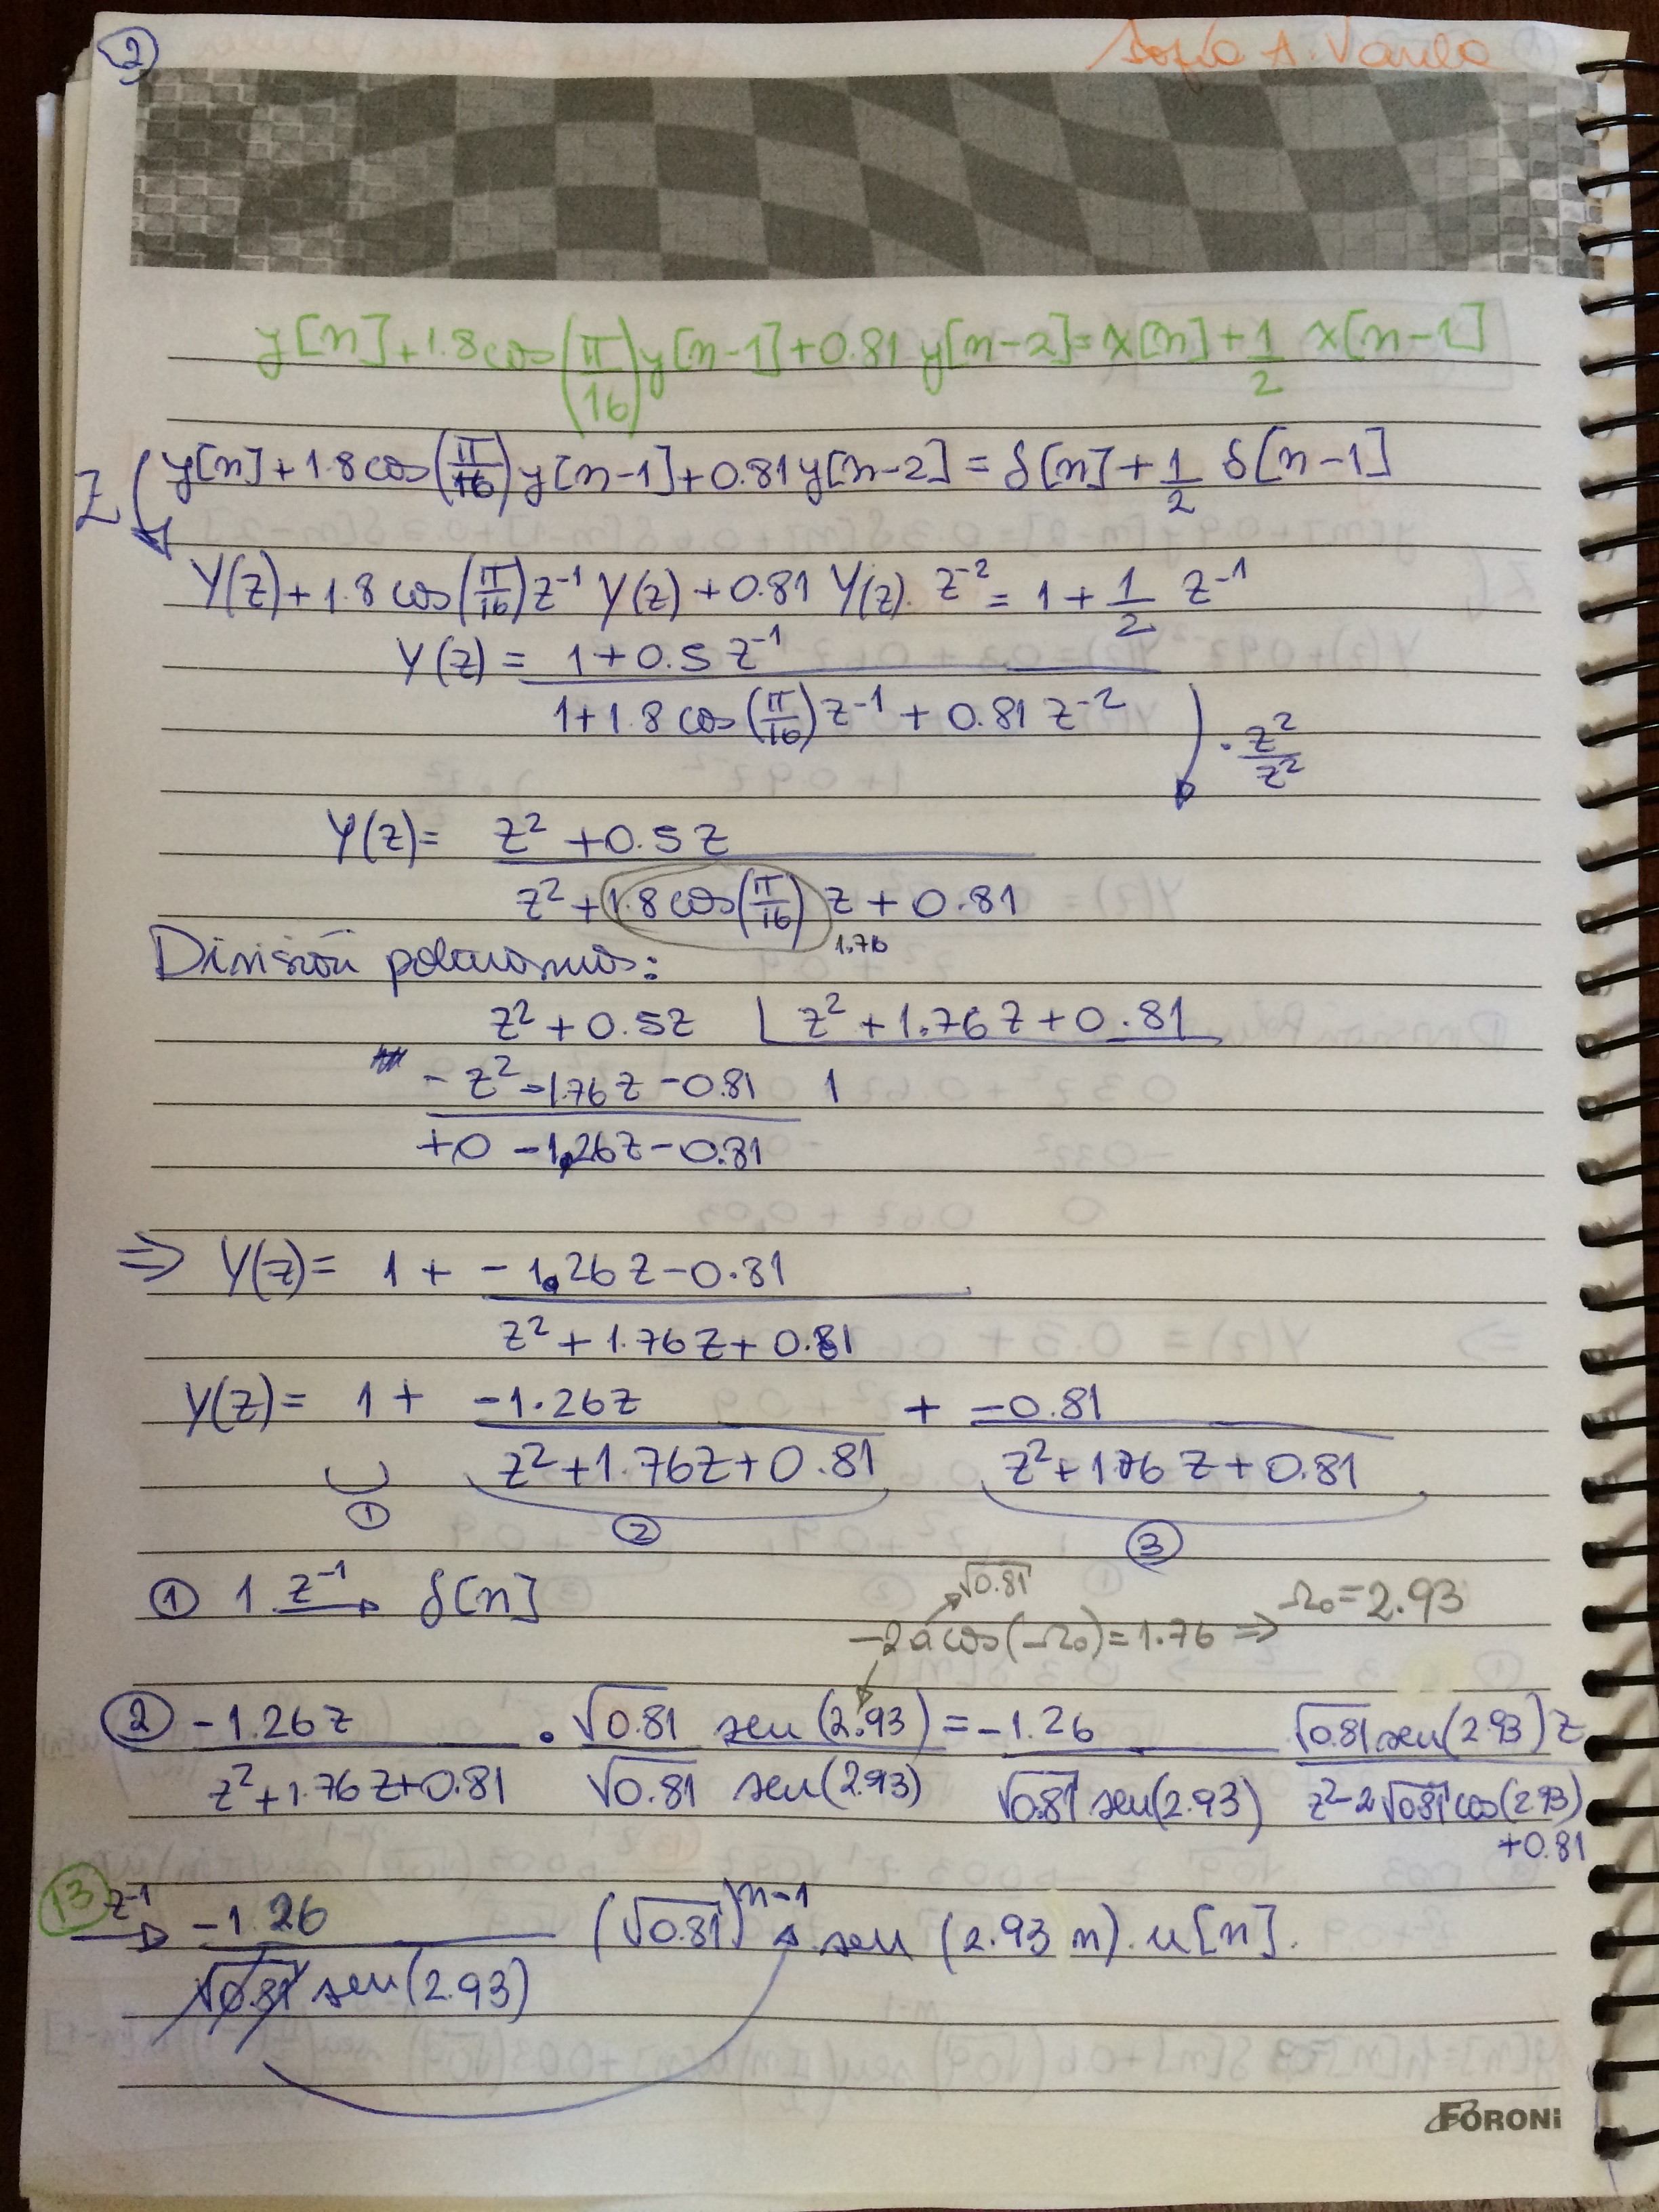 ② Sofía A. Varela
y[n]+1.8cos(π/16)y[n-1]+0.81 y[n-2]=x[n]+1/2 x[n-1]
Z ( y[n]+1.8cos(π/16)y[n-1]+0.81y[n-2] = δ[n]+1/2 δ[n-1]
Y(z)+1.8cos(π/16)z⁻¹ Y(z)+0.81 Y(z). z⁻² = 1+1/2 z⁻¹
Y(z) = 1+0.5z⁻¹
1+1.8cos(π/16)z⁻¹ + 0.81z⁻²
· z²/z²
Y(z)= z²+0.5z
z²+1.8cos(π/16)z + 0.81
1.76
División polinomios:
z²+0.5z | z²+1.76z+0.81
-z²-1.76z-0.81 1
+0 -1.26z-0.81
⇒ Y(z)= 1 + -1.26z-0.81
z²+1.76z+0.81
Y(z)= 1 + -1.26z + -0.81
z²+1.76z+0.81 z²+1.76z+0.81
① ② ③
① 1 z⁻¹→ δ[n]
√0.81
-2a cos(-Ω₀)=1.76 ⇒ Ω₀=2.93
② -1.26z · √0.81 sen(2.93) = -1.26 √0.81 sen(2.93)z
z²+1.76z+0.81 √0.81 sen(2.93) √0.81 sen(2.93) z²-2√0.81 cos(2.93)
+0.81
13 z⁻¹→ -1.26 (√0.81)ⁿ⁻¹ sen (2.93 n). u[n].
√0.81 sen(2.93)
FORONI